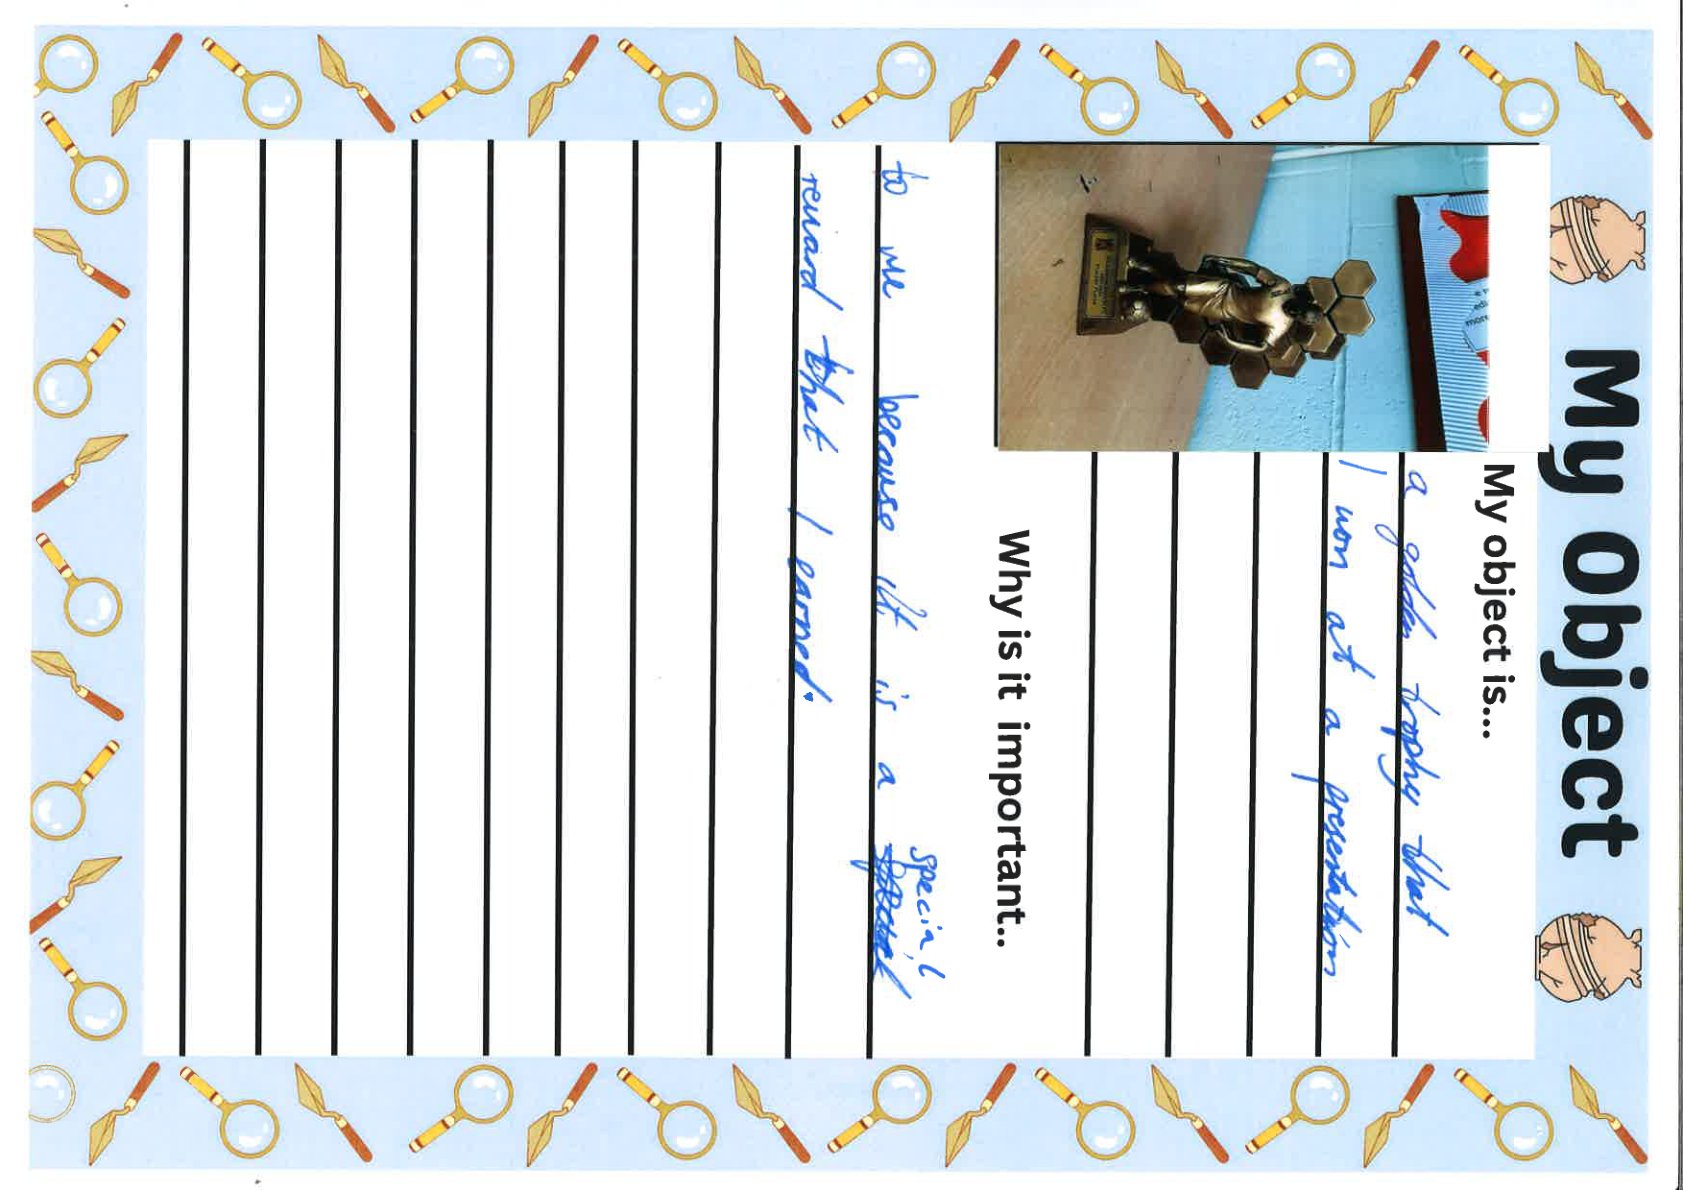 My Object
My object is...
a golden trophy that
I won at a presentation
Why is it important..
to me because it is a special
reward that I earned.